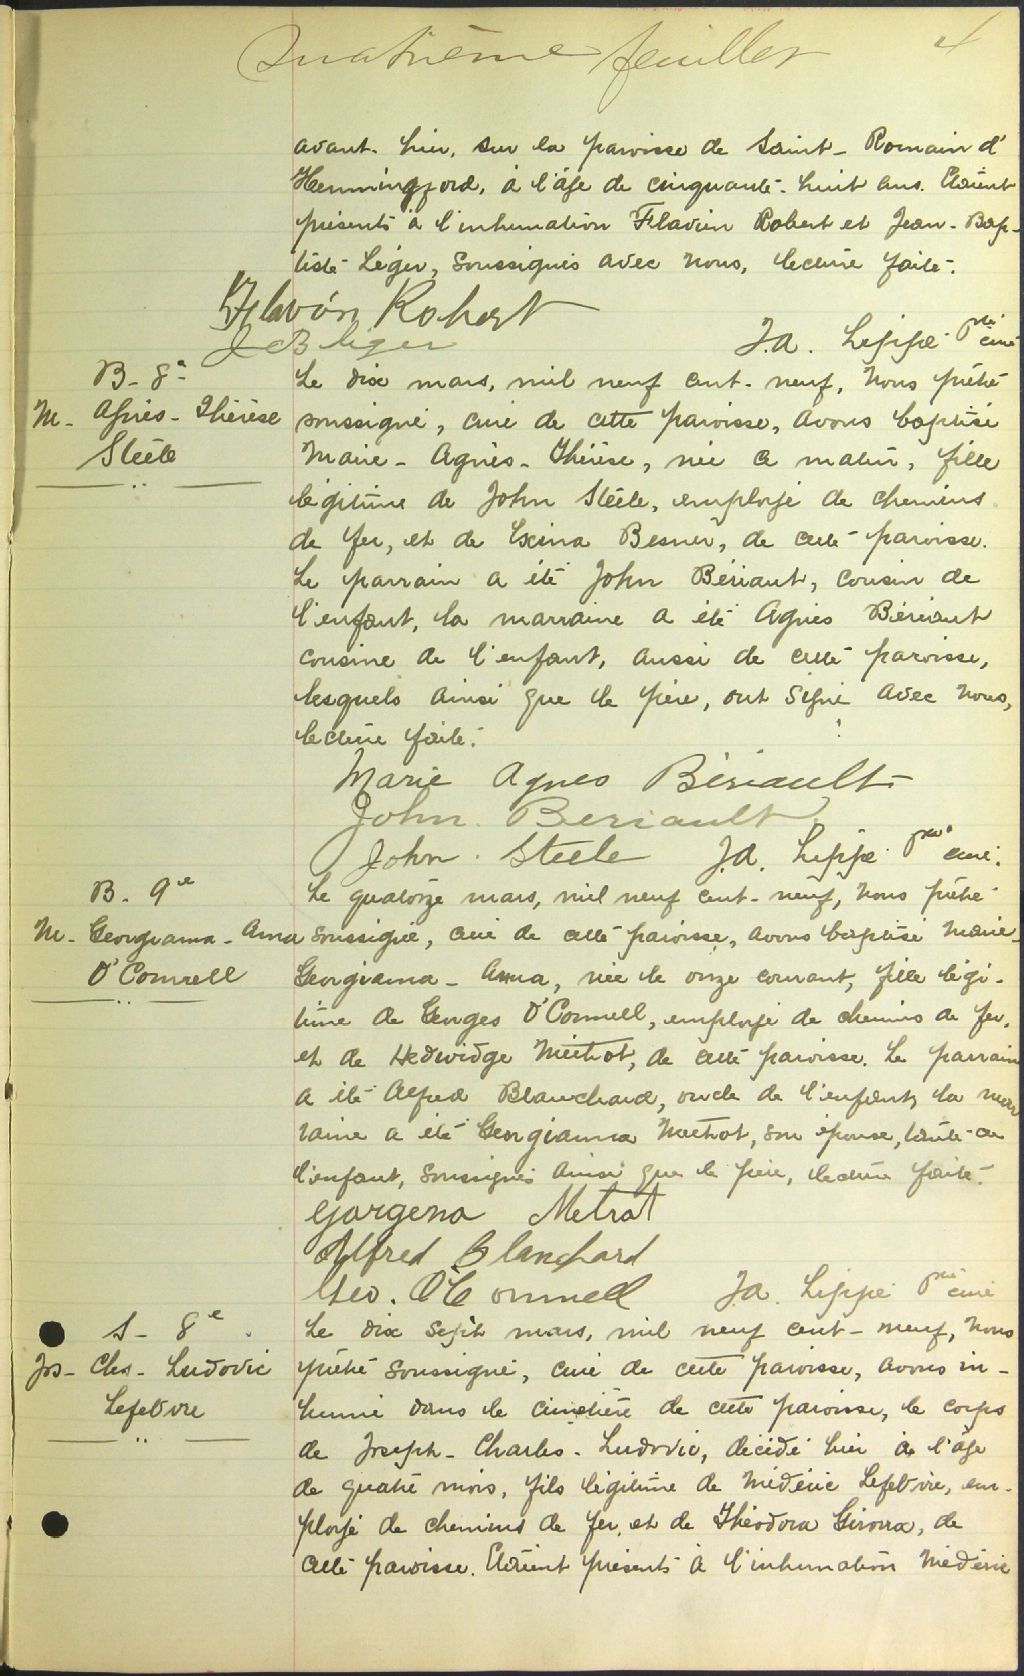 Quatrième feuillet 4
avant-hier, sur la paroisse de Saint-Romain d'
Hemmingford, à l'âge de cinquante-huit ans. Etaient
présents à l'inhumation Flavien Robert et Jean-Bap-
tiste Léger, soussignés avec nous, lecture faite.
Flavien Robert
J B Leger J.A. Lippé Ptre curé
B- 8e
M- Agnès- Thérèse
Steele
Le dix mars, mil neuf cent-neuf, nous prêtre
soussigné, curé de cette paroisse, avons baptisé
Marie-Agnès-Thérèse, née ce matin, fille
légitime de John Steele, employé de chemins
de fer, et de Exina Besner, de cette paroisse.
Le parrain a été John Bériaut, cousin de
l'enfant, la marraine a été Agnès Bériaut
cousine de l'enfant, aussi de cette paroisse,
lesquels ainsi que le père, ont signé avec nous,
lecture faite.
Marie Agnes Bériault
John Beriault
John Steele J.A. Lippé Ptre curé.
B. 9e
M- Georgianna-Anna
O'Connell
Le quatorze mars, mil neuf cent-neuf, nous prêtre
soussigné, curé de cette paroisse, avons baptisé Marie-
Georgianna-Anna, née le onze courant, fille légi-
time de Georges O'Connell, employé de chemins de fer,
et de Hedwidge Métrot, de cette paroisse. Le parrain
a été Alfred Blanchard, oncle de l'enfant, la mar
raine a été Georgianna Métrot, son épouse, tante de
l'enfant, soussignés ainsi que le père, lecture faite.
Gorgena Metrat
Alfred Blanchard
Geo. O'Connell J.A. Lippé Ptre curé
S- 8e
Jos- Chs- Ludovic
Lefebvre
Le dix sept mars, mil neuf cent-neuf, nous
prêtre soussigné, curé de cette paroisse, avons in-
humé dans le cimetière de cette paroisse, le corps
de Joseph-Charles-Ludovic, décédé hier à l'âge
de quatre mois, fils légitime de Médéric Lefebvre, em-
ployé de chemins de fer, et de Théodora Giroux, de
cette paroisse. Etaient présents à l'inhumation Médéric